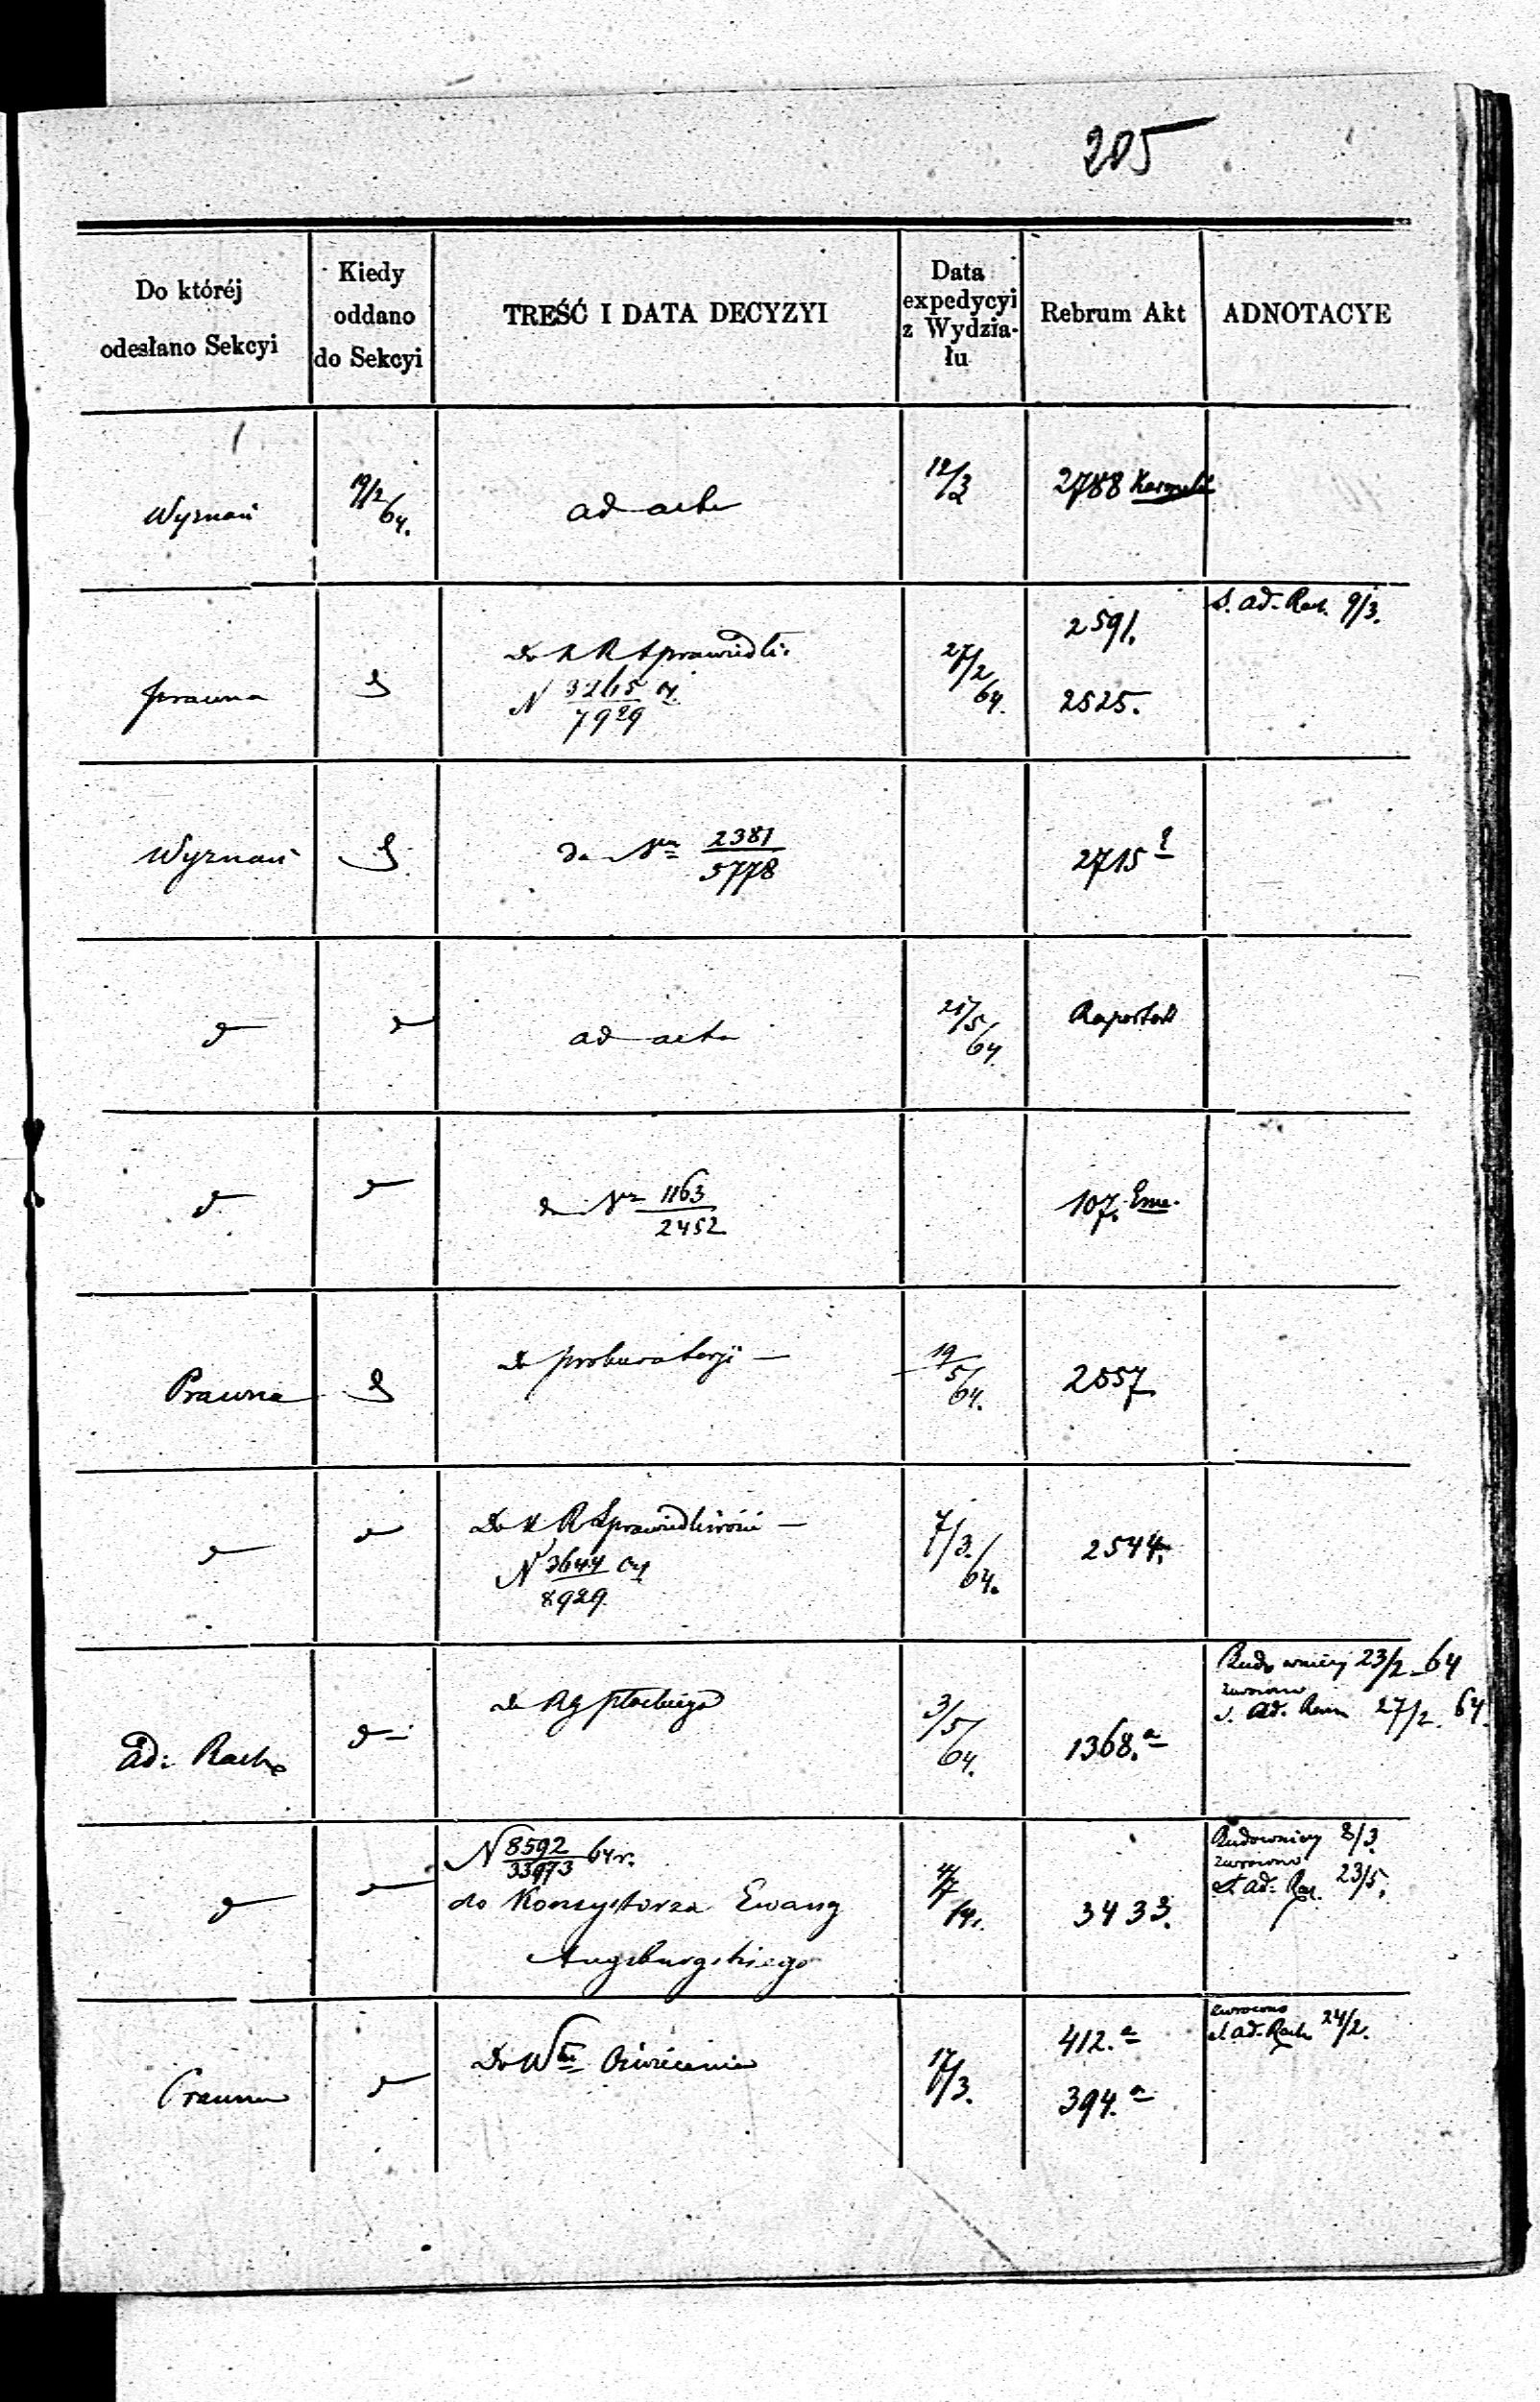 205
Do któréj
odesłano Sekcyi
Kiedy
oddano
do Sekcyi
TREŚĆ I DATA DECYZYI
Data
expedycyi
z Wydzia-
łu
Rebrum Akt
ADNOTACYE
Wyznań
19/2
64.
ad acta
12/3
2788
prawna
Do K R Sprawiedli:
N 3265
7929
27/2
64.
2591.
2525.
S. ad. Rach. 9/3.
Wyznań
do Nru 2381
5778
2715
d
d
ad acta
21/5
64.
d
d
do Nru 1163
2452
107.
Prawna
do prokuratorji —
19/5
64.
2557
d
d
Do K R Sprawiedliwości —
N 3644
8929
7/3.
64.
2544.
ad: Rach
d
do RG płockiego
3/5
64.
1368.a
Budowniczy 23/2 64
zwrócono
S. ad. 27/2. 64.
d
d
N 8592 64r.
33973
do Konsystorza Ewang
Augsburgskiego
3433.
Budowniczy 8/3
zwrócono
S. ad. Rach. 23/5.
Prawna
d
Do Oświecenia
17/3.
412.a
394.a
zwrócono
S. ad. Rach 24/2.